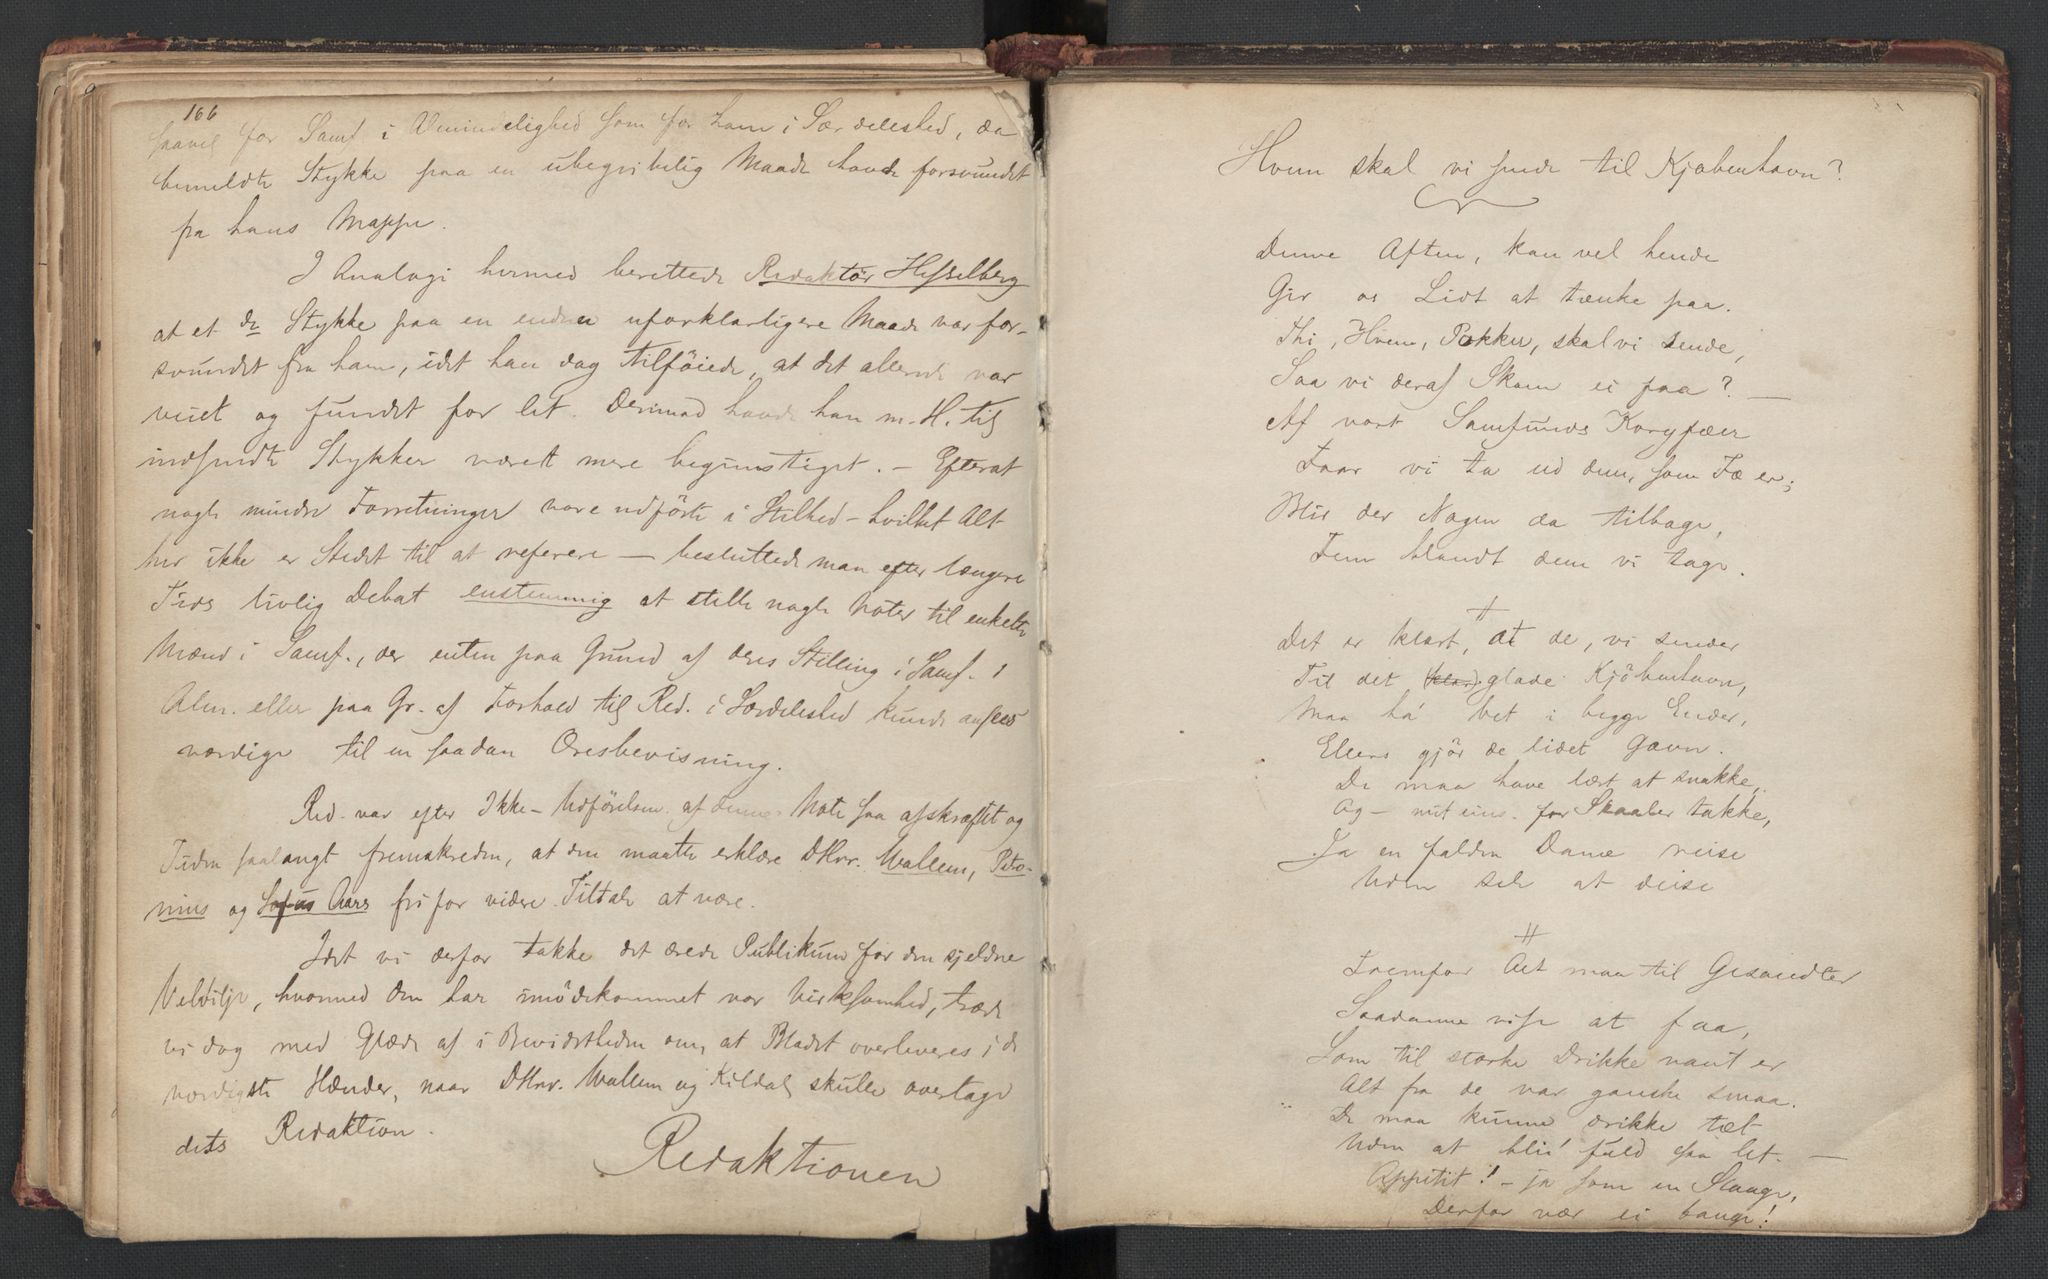 166
saavel for Samf i Almindelighed som for ham i Særdeleshed, da
bemeldte Stykke paa en ubegribelig Maade havde forsvundet
fra hans Mappe.
I Analogi hermed berettede Redaktör Hesselberg
at et do Stykke paa en endnu uforklarligere Maade var for-
svundet fra ham, idet han dog tilföiede, at det allerede var
veiet og fundet for let. Derimod havde han m. H. til
indsendte Stykker været mere begunstiget. – Efterat
nogle mindre Forretninger vare udförte i Stilhed – hvilket Alt
her ikke er Stedet til at referere – besluttede man efter længere
Tids livlig Debat enstemmig at stille nogle Noter til enkelte
Mænd i Samf., der enten paa Grund af deres Stilling i Samf. i
Alm. eller paa Gr. af Forhold til Red. i Særdeleshed kunde ansees
værdige til en saadan Æresbevisning.
Red. var efter Ikke-Udförelsen af denne Note saa afskræftet og
Tiden saalangt fremskreden, at den maatte erklære DHrr. Wallem, Petro-
nius og Sofus Aars fri for videre Tiltale at være.
Idet vi derfor takke det ærede Publikum for den sjeldne
Velvilje, hvormed den har imödekommet vor Virksomhed, træde
vi dog med Glæde af i Bevidstheden om, at Bladet overleveres i de
værdigste Hænder, naar DHrr. Wallem og Kildal skulle overtage
dets Redaktion.
Redaktionen
Hvem skal vi sende til Kjøbenhavn?
Denne Aften, kan vel hende
Gir os Lidt at tænke paa.
Thi, Hvem, Pokker, skal vi sende,
Saa vi deraf Skam ei faa? —
Af vort Samfunds Koryfæer
Faar vi ta ud dem, som Fæ er;
Blir der Nogen da tilbage,
Fem blandt dem vi tage.
+
Det er klart, at de, vi sender
Til det glade Kjöbenhavn,
Maa ha' Vet i begge Ender,
Ellers gjör de lidet Gavn.
De maa have lært at snakke,
Og – mit eins. for Skaaler takke,
Ja en falden Dame reise
Uden selv at deise
++
Fremfor Alt maa til Gesandter
Saadanne viss at faa,
Som til stærke Drikke vant er
Alt fra de var ganske smaa.
De maa kunne drikke tæt
Uden at bli' fuld saa let. —
Appetit! – ja som en Slange,
Derfor vær ei bange!